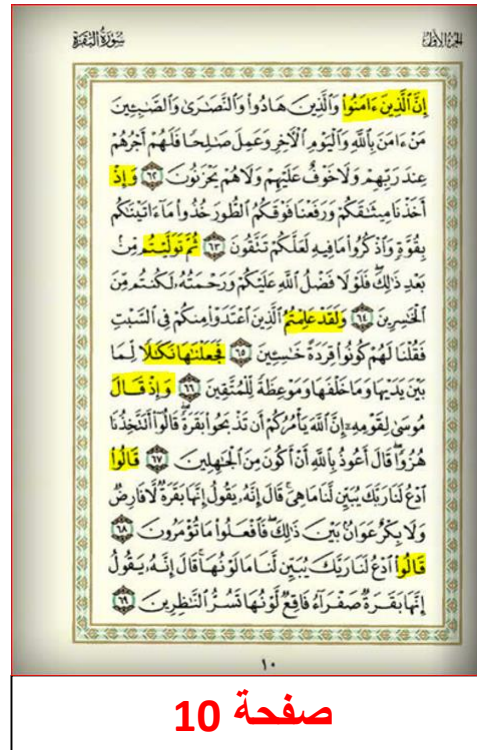 الجزء الأول سورة البقرة
إِنَّ ٱلَّذِينَ ءَامَنُوا۟ وَٱلَّذِينَ هَادُوا۟ وَٱلنَّصَٰرَىٰ وَٱلصَّٰبِـِٔينَ
مَنْ ءَامَنَ بِٱللَّهِ وَٱلْيَوْمِ ٱلْـَٔاخِرِ وَعَمِلَ صَٰلِحًا فَلَهُمْ أَجْرُهُمْ
عِندَ رَبِّهِمْ وَلَا خَوْفٌ عَلَيْهِمْ وَلَا هُمْ يَحْزَنُونَ ٦٢ وَإِذْ
أَخَذْنَا مِيثَٰقَكُمْ وَرَفَعْنَا فَوْقَكُمُ ٱلطُّورَ خُذُوا۟ مَآ ءَاتَيْنَٰكُم
بِقُوَّةٍ وَٱذْكُرُوا۟ مَا فِيهِ لَعَلَّكُمْ تَتَّقُونَ ٦٣ ثُمَّ تَوَلَّيْتُم مِّنۢ
بَعْدِ ذَٰلِكَ ۖ فَلَوْلَا فَضْلُ ٱللَّهِ عَلَيْكُمْ وَرَحْمَتُهُۥ لَكُنتُم مِّنَ
ٱلْخَٰسِرِينَ ٦٤ وَلَقَدْ عَلِمْتُمُ ٱلَّذِينَ ٱعْتَدَوْا۟ مِنكُمْ فِى ٱلسَّبْتِ
فَقُلْنَا لَهُمْ كُونُوا۟ قِرَدَةً خَٰسِـِٔينَ ٦٥ فَجَعَلْنَٰهَا نَكَٰلًا لِّمَا
بَيْنَ يَدَيْهَا وَمَا خَلْفَهَا وَمَوْعِظَةً لِّلْمُتَّقِينَ ٦٦ وَإِذْ قَالَ
مُوسَىٰ لِقَوْمِهِۦٓ إِنَّ ٱللَّهَ يَأْمُرُكُمْ أَن تَذْبَحُوا۟ بَقَرَةً ۖ قَالُوٓا۟ أَتَتَّخِذُنَا
هُزُوًا ۖ قَالَ أَعُوذُ بِٱللَّهِ أَنْ أَكُونَ مِنَ ٱلْجَٰهِلِينَ ٦٧ قَالُوا۟
ٱدْعُ لَنَا رَبَّكَ يُبَيِّن لَّنَا مَا هِىَ ۚ قَالَ إِنَّهُۥ يَقُولُ إِنَّهَا بَقَرَةٌ لَّا فَارِضٌ
وَلَا بِكْرٌ عَوَانٌۢ بَيْنَ ذَٰلِكَ ۖ فَٱفْعَلُوا۟ مَا تُؤْمَرُونَ ٦٨
قَالُوا۟ ٱدْعُ لَنَا رَبَّكَ يُبَيِّن لَّنَا مَا لَوْنُهَا ۚ قَالَ إِنَّهُۥ يَقُولُ
إِنَّهَا بَقَرَةٌ صَفْرَآءُ فَاقِعٌ لَّوْنُهَا تَسُرُّ ٱلنَّٰظِرِينَ ٦٩
١٠
صفحة 10